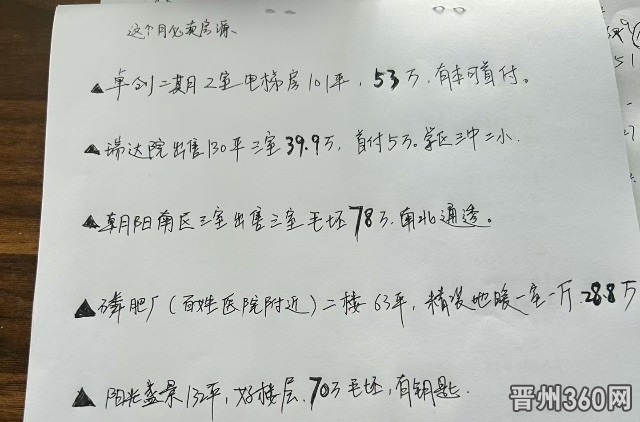 这个月必卖房源、
▲卓创二期2室电梯房101平,53万.有本可首付。
▲瑞达院出售130平三室39.9万,首付5万。学区三中二小.
▲朝阳南区三室出售三室毛坯78万.南北通透。
▲磷肥厂(百姓医院附近)二楼63平,精装地暖一室一厅.28.8万
▲阳光盛景13平,好楼层.70万毛坯,有钥匙.
晋州360网